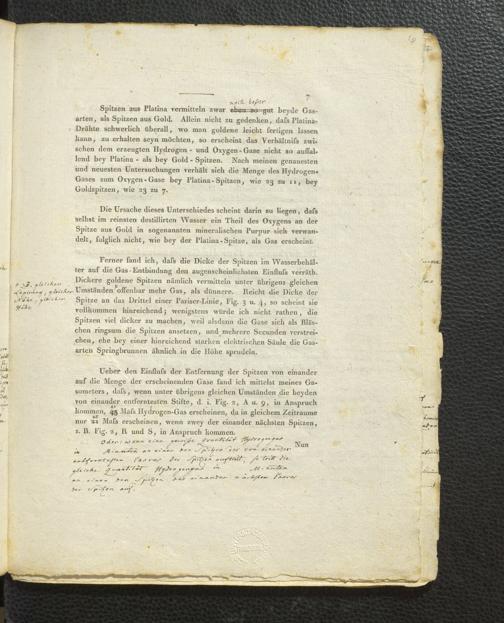 7
noch besser
Spitzen aus Platina vermitteln zwar eben so gut beyde Gas-
arten, als Spitzen aus Gold. Allein nicht zu gedenken, daſs Platina-
Drähte schwerlich überall, wo man goldene leicht fertigen lassen
kann, zu erhalten seyn möchten, so erscheint das Verhältniſs zwi-
schen dem erzeugten Hydrogen- und Oxygen-Gase nicht so auffal-
lend bey Platina- als bey Gold-Spitzen. Nach meinen genauesten
und neuesten Untersuchungen verhält sich die Menge des Hydrogen-
Gases zum Oxygen-Gase bey Platina-Spitzen, wie 23 zu 11, bey
Goldspitzen, wie 23 zu 7.
Die Ursache dieses Unterschiedes scheint darin zu liegen, daſs
selbst im reinsten destillirten Wasser ein Theil des Oxygens an der
Spitze aus Gold in sogenannten mineralischen Purpur sich verwan-
delt, folglich nicht, wie bey der Platina-Spitze, als Gas erscheint.
Ferner fand ich, daſs die Dicke der Spitzen im Wasserbehäl-
ter auf die Gas-Entbindung den augenscheinlichsten Einfluſs verräth.
Dickere goldene Spitzen nämlich vermitteln unter übrigens gleichen
Umständen offenbar mehr Gas, als dünnere. Reicht die Dicke der
Spitze an das Drittel einer Pariser-Linie, Fig. 3 u. 4, so scheint sie
vollkommen hinreichend; wenigstens würde ich nicht rathen, die
Spitzen viel dicker zu machen, weil alsdann die Gase sich als Bläs-
chen ringsum die Spitzen ansetzen, und mehrere Secunden verstrei-
chen, ehe bey einer hinreichend starken elektrischen Säule die Gas-
arten Springbrunnen ähnlich in die Höhe sprudeln.
gleichen
gleicher
Nähe, gleicher
Höhe
Ueber den Einfluſs der Entfernung der Spitzen von einander
auf die Menge der erscheinenden Gase fand ich mittelst meines Ga-
someters, daſs, wenn unter übrigens gleichen Umständen die beyden
von einander entferntesten Stifte, d. i. Fig. 2, A u. 9, in Anspruch
kommen, Maſs Hydrogen-Gas erscheinen, da in gleichem Zeitraume
nur Maſs erscheinen, wenn zwey der einander nächsten Spitzen,
z. B. Fig. 2, R und S, in Anspruch kommen.
Nun
Oder: wenn eine gewisse Quantität Hydrogengas
in Minuten an einer der Spitzen des von einander
entferntesten Paares der Spitzen aufsteigt, so tritt die
gleiche Quantität Hydrogengas in Minuten
an einer der Spitzen des einander nächsten Paares
der Spitzen auf.